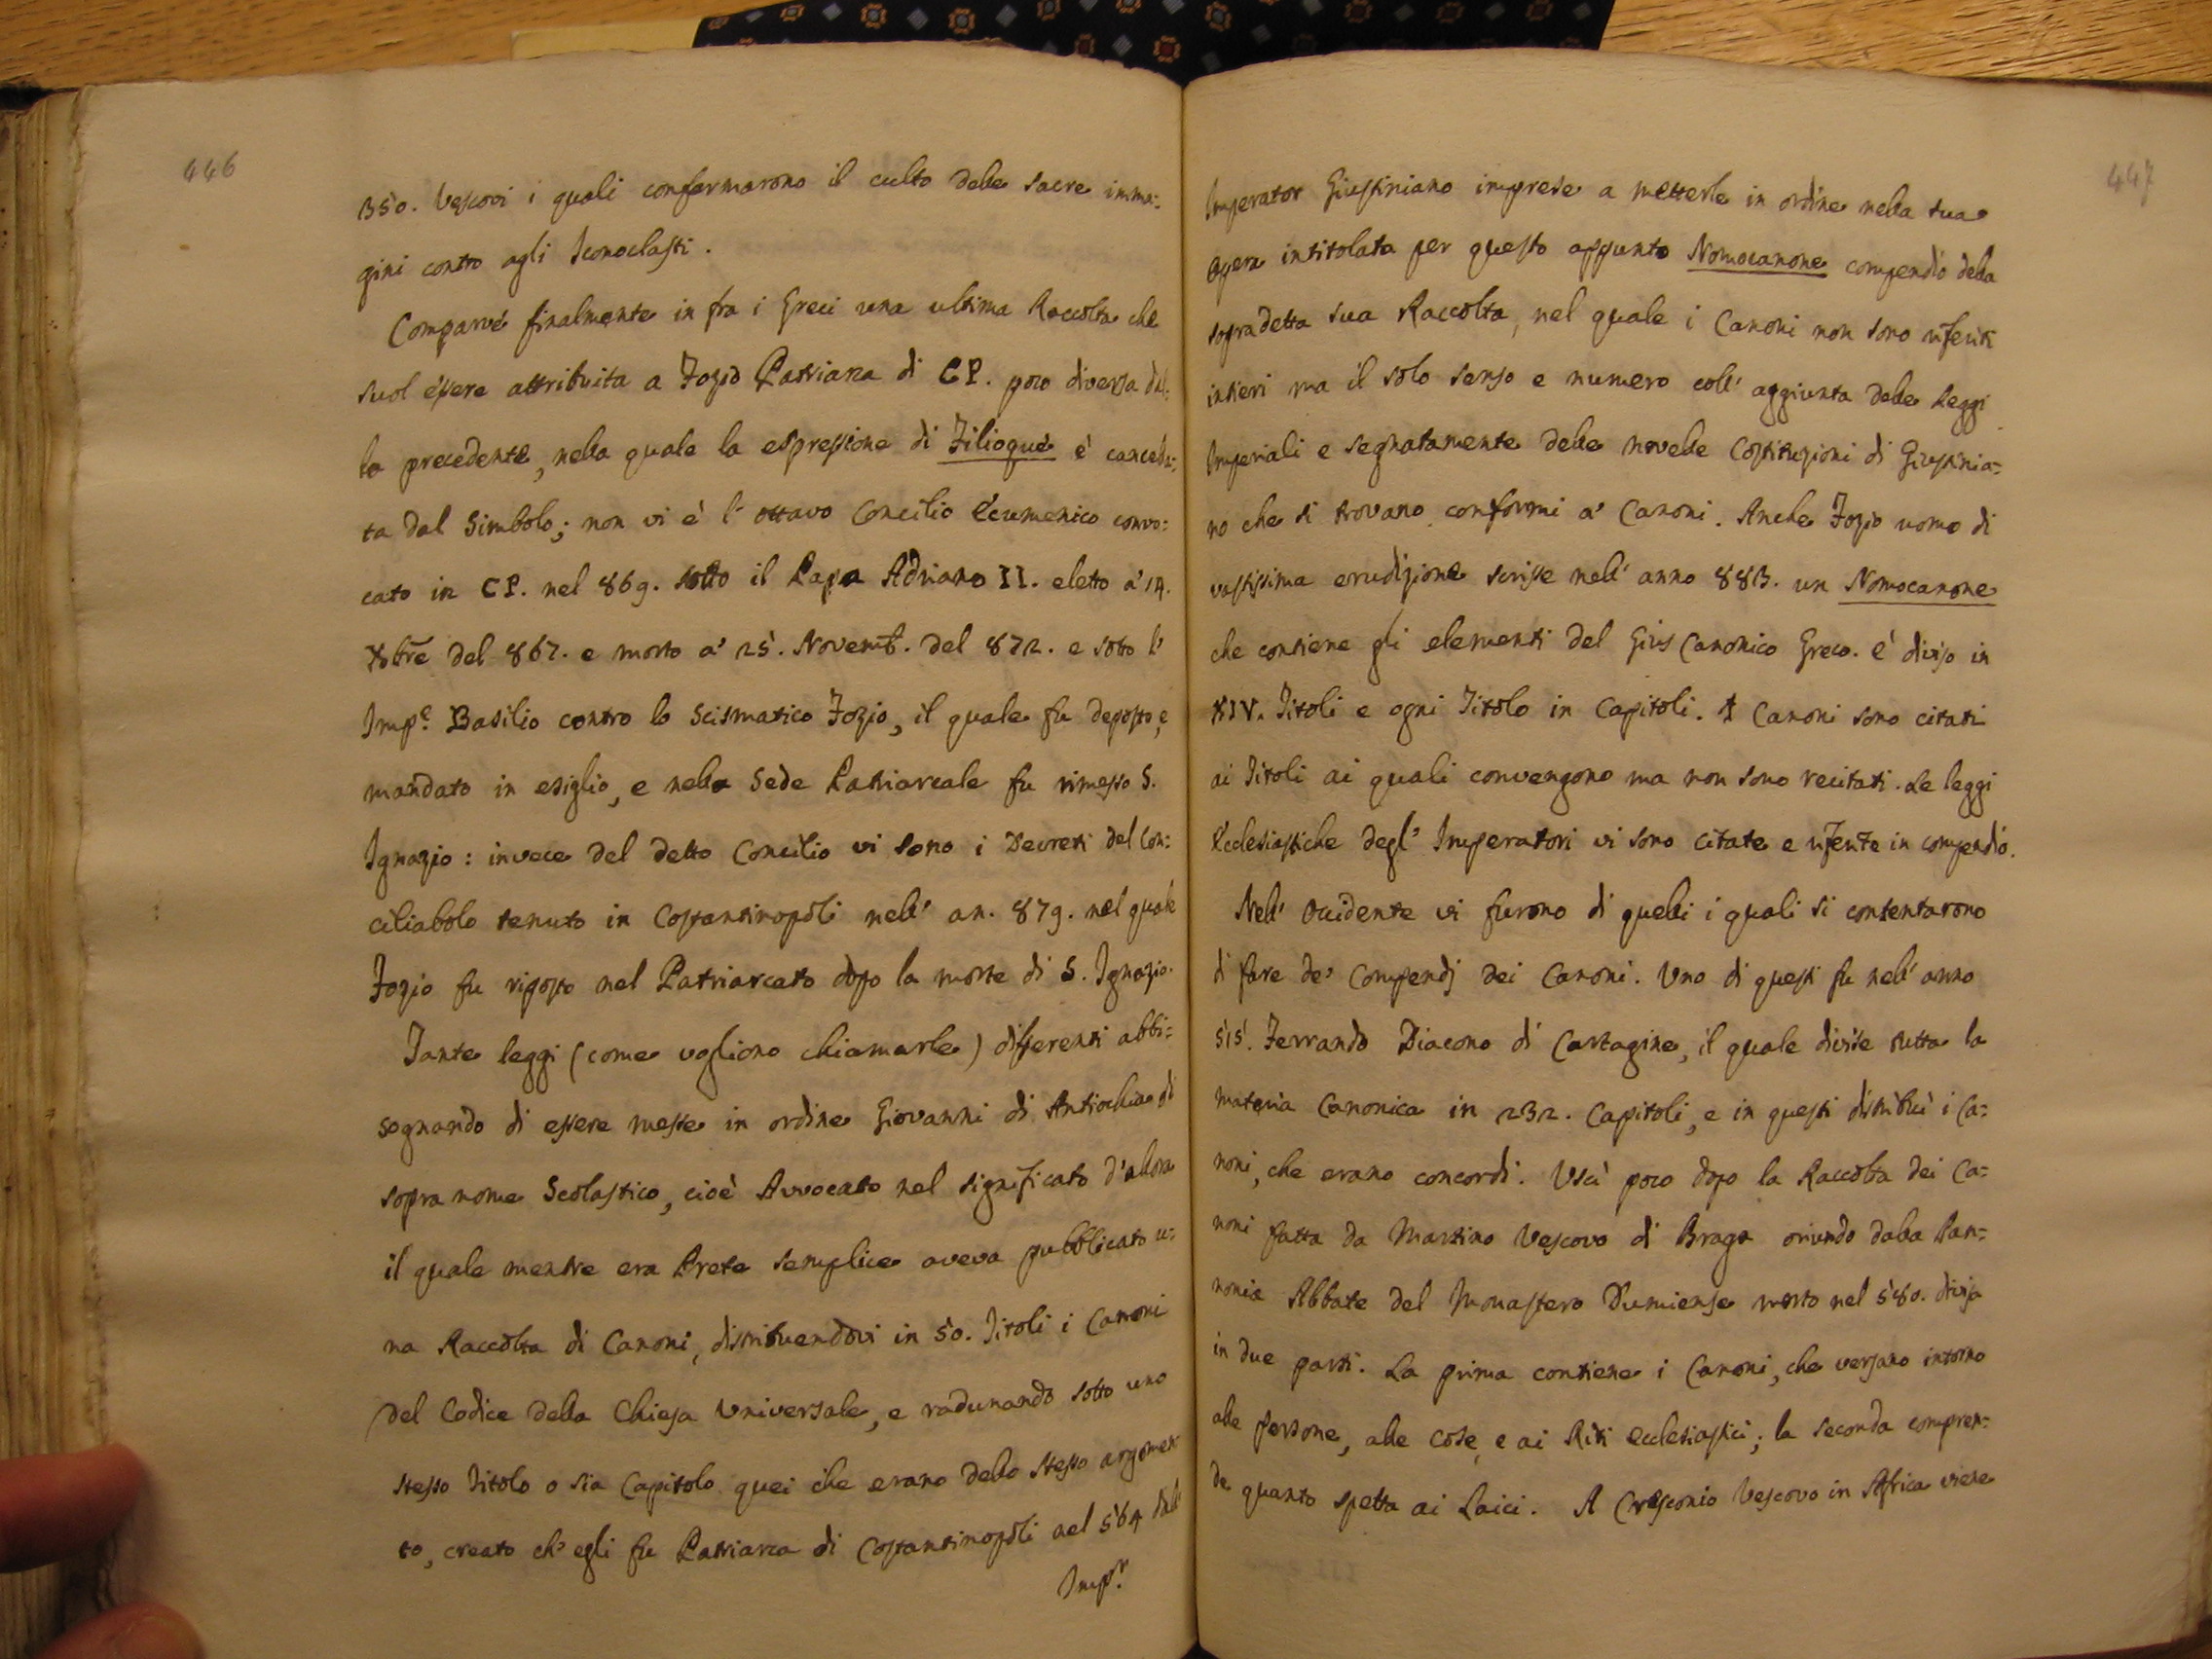 446
350. Vescovi i quali confermarono il culto delle sacre imma:
gini contro agli Iconoclasti.
Comparve finalmente in fra i Greci una ultima Raccolta che
suol essere attribuita a Fozio Patriarca di CP. poco diversa dal:
la precedente, nella quale la espressione di Filioque è cancella:
ta dal Simbolo; non vi è l'ottavo Concilio Ecumenico convo:
cato in CP. nel 869. sotto il Papa Adriano II. eletto a' 14.
Xbre del 867. e morto a' 25. Novemb. del 872. e sotto l'
Imp.e Basilio contro lo Scismatico Fozio, il quale fu deposto, e
mandato in esiglio, e nella Sede Patriarcale fu rimesso S.
Ignazio: invece del detto Concilio vi sono i Decreti del Con:
ciliabolo tenuto in Costantinopoli nell' an. 879. nel quale
Fozio fu riposto nel Patriarcato dopo la morte di S. Ignazio.
Tante leggi (come vogliono chiamarle) differenti abbi=
sognando di essere messe in ordine Giovanni di Antiochia di
sopra nome Scolastico, cioè Avvocato nel significato d'allora
il quale mentre era Prete semplice aveva pubblicato u:
na Raccolta di Canoni, distribuendovi in 50. Titoli i Canoni
del Codice della Chiesa Universale, e radunando sotto uno
stesso Titolo o sia Capitolo quei che erano dello stesso argomen
to, creato ch' egli fu Patriarca di Costantinopoli nel 564 dall'
Imp.r
447
Imperator Giustiniano imprese a metterle in ordine nella sua
Opera intitolata per questo appunto Nomocanone compendio della
sopradetta sua Raccolta, nel quale i Canoni non sono riferiti
intieri ma il solo senso e numero coll' aggiunta delle Leggi
Imperiali e segnatamente delle novelle Costituzioni di Giustinia=
no che si trovano conformi a' Canoni. Anche Fozio uomo di
vastissima erudizione scrisse nell' anno 883. un Nomocanone
che contiene gli elementi del Gius Canonico Greco. è diviso in
XIV. Titoli e ogni Titolo in Capitoli. I Canoni sono citati
ai Titoli ai quali convengono ma non sono recitati. Le leggi
Ecclesiastiche degl' Imperatori vi sono citate e riferite in compendio.
Nell' Occidente vi furono di quelli i quali si contentarono
di fare de' Compendj dei Canoni. Uno di questi fu nell' anno
515. Ferrando Diacono di Cartagine, il quale divise tutta la
materia Canonica in 232. Capitoli, e in questi distribuì i Ca=
noni, che erano concordi. Uscì poco dopo la Raccolta dei Ca=
noni fatta da Martino Vescovo di Braga oriundo dalla Pan=
nonia Abbate del Monastero Dumiense morto nel 580. divisa
in due parti. La prima contiene i Canoni, che versano intorno
alle persone, alle cose, e ai Riti ecclesiastici; la seconda compren=
de quanto spetta ai Laici. A Cresconio Vescovo in Africa viene